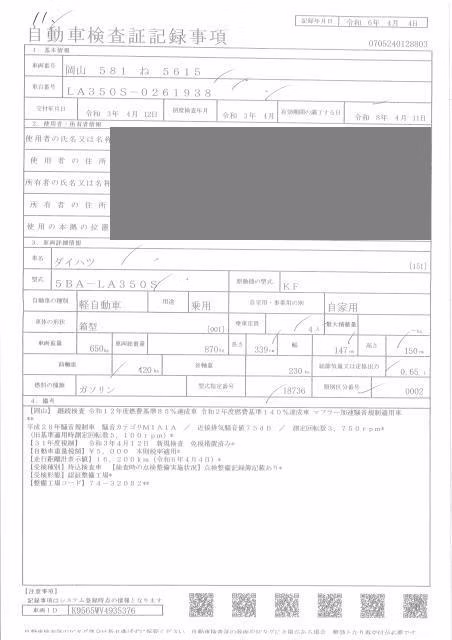 11.
記録年月日 令和 6年 4月 4日
自動車検査証記録事項
0705240128803
1. 基本情報
車両番号 岡山 581 ね 5615
車台番号 LA350S-0261938
交付年月日 令和 3年 4月 12日 初度検査年月 令和 3年 4月 有効期間の満了する日 令和 8年 4月 11日
2. 使用者・所有者情報
使用者の氏名又は名称
使用者の住所
所有者の氏名又は名称
所有者の住所
使用の本拠の位置
3. 車両詳細情報
車名 ダイハツ [151]
型式 5BA-LA350S 原動機の型式 KF
自動車の種別 軽自動車 用途 乗用 自家用・事業用の別 自家用
車体の形状 箱型 [001] 乗車定員 4人 最大積載量 -kg
車両重量 650kg 車両総重量 870kg 長さ 339cm 幅 147cm 高さ 150cm
前軸重 420kg 後軸重 230kg 総排気量又は定格出力 0.65L
燃料の種類 ガソリン 型式指定番号 18736 類別区分番号 0002
4. 備考
【岡山】 継続検査 令和12年度燃費基準86%達成車 令和2年度燃費基準140%達成車 マフラー加速騒音規制適用車
**
平成28年騒音規制車 騒音カテゴリM1A1A / 近接排気騒音値75dB / 測定回転数3,750rpm*
(旧基準適用時測定回転数5,100rpm)*
【31年度税制】 令和3年4月12日 新規検査 免税措置済み*
【自動車重量税額】¥5,000 本則税率適用*
【走行距離計表示値】16,200km(令和6年4月4日)*
【受検種別】持込検査車 【検査時の点検整備実施状況】点検整備記録簿記載あり*
【受検形態】認証整備工場*
【整備工場コード】74-32082**
【注意事項】
記録事項はシステム登録時点の情報となります
車両ID K9565WV4935376